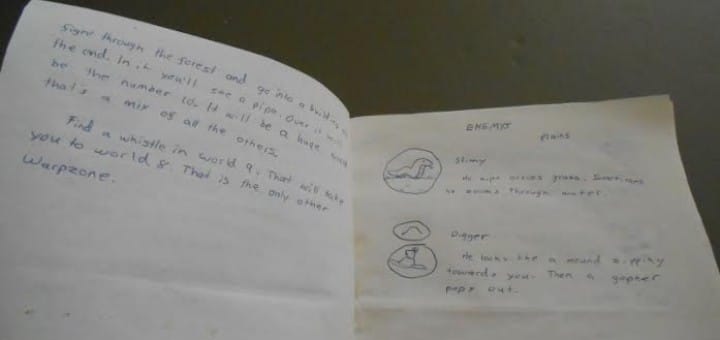 through the forest and go into a building
the end. In it you'll see a pipe. Over it will
be the number 10. It will be a huge world
that's a mix of all the others.
Find a whistle in world 9. That will take
you to world 8. That is the only other
Warpzone.
ENEMYS
Plains
Slimy
He wips across grass. Sometimes
he swims through water.
Digger
He looks like a mound slipping
towards you. Then a gopher
pops out.